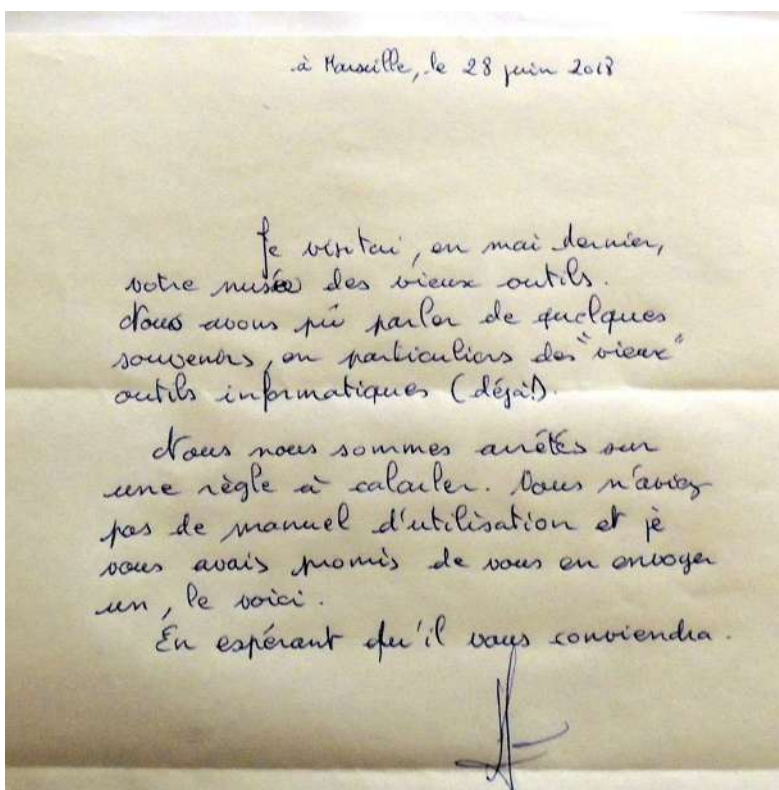 à Marseille, le 28 juin 2018
Je visitai, en mai dernier,
votre musée des vieux outils.
Nous avons pû parler de quelques
souvenirs, en particuliers des "vieux"
outils informatiques (déjà!).
Nous nous sommes arrêtés sur
une règle à calculer. Vous n'aviez
pas de manuel d'utilisation et je
vous avais promis de vous en envoyer
un, le voici.
En espérant qu'il vous conviendra.